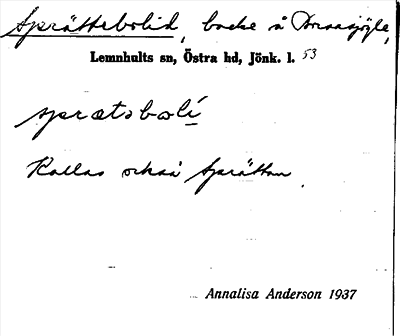 Sprättebolid, backe å Boaasjögle,
Lemnhults sn, Östra hd, Jönk. l. 53
sprætsbolí
Kallas också Sprättan.
Annalisa Anderson 1937